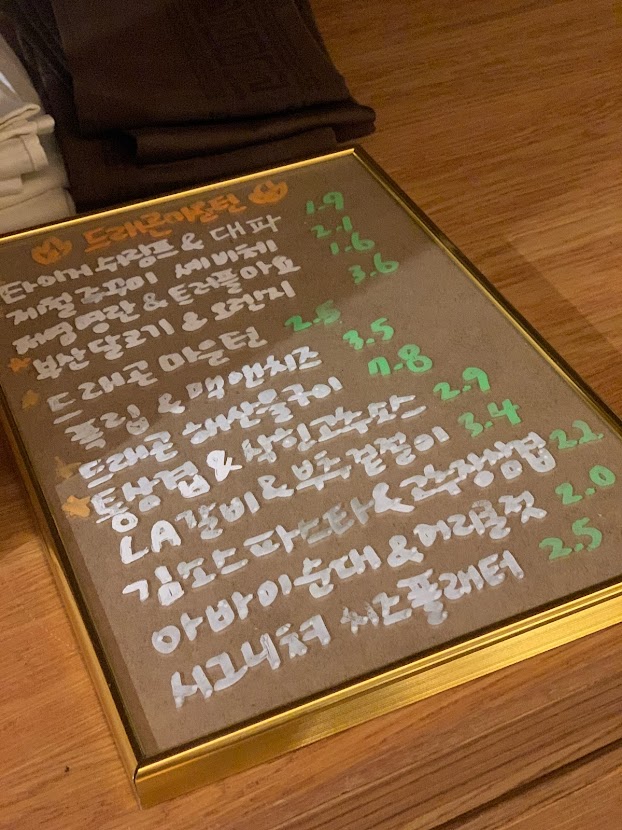 드래곤마운틴
타이거쉬림프 & 대파 1.9
제철 쭈꾸미 세비체 2.1
저염 명란 & 트러플마요 1.6
부산 달고기 & 오렌지 3.6
드래곤 마운틴 2.5
폭립 & 맥앤치즈 3.5
드래곤 해산물구이 7.8
통삼겹 & 삭힌고추소스 2.9
LA갈비 & 부추겉절이 3.4
김소스파스타 & 고추장삼겹 2.2
아바이순대 & 어리굴젓 2.0
시그니쳐 치즈플래터 2.5